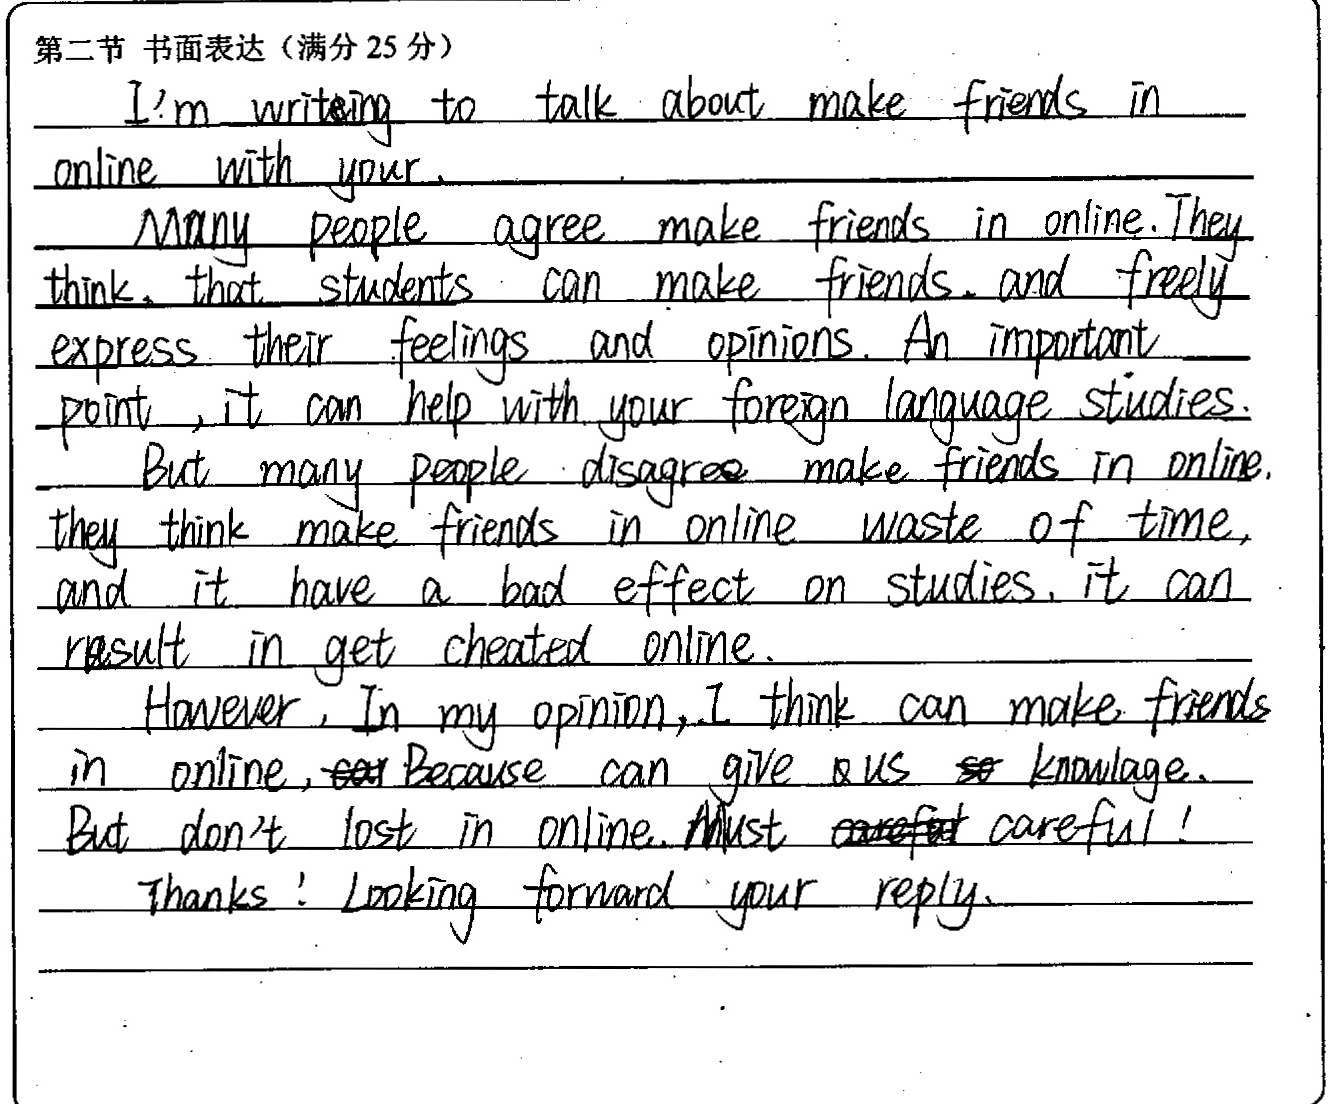 第二节 书面表达（满分 25 分）
I'm writing to talk about make friends in
online with your.
Many people agree make friends in online. They
think. that students can make friends. and freely
express their feelings and opinions. An important
point, it can help with your foreign language studies.
But many people disagree make friends in online.
they think make friends in online waste of time,
and it have a bad effect on studies. it can
result in get cheated online.
However, In my opinion, I think can make friends
in online, Because can give us knowlage.
But don't lost in online. Must careful!
Thanks! Looking forward your reply.